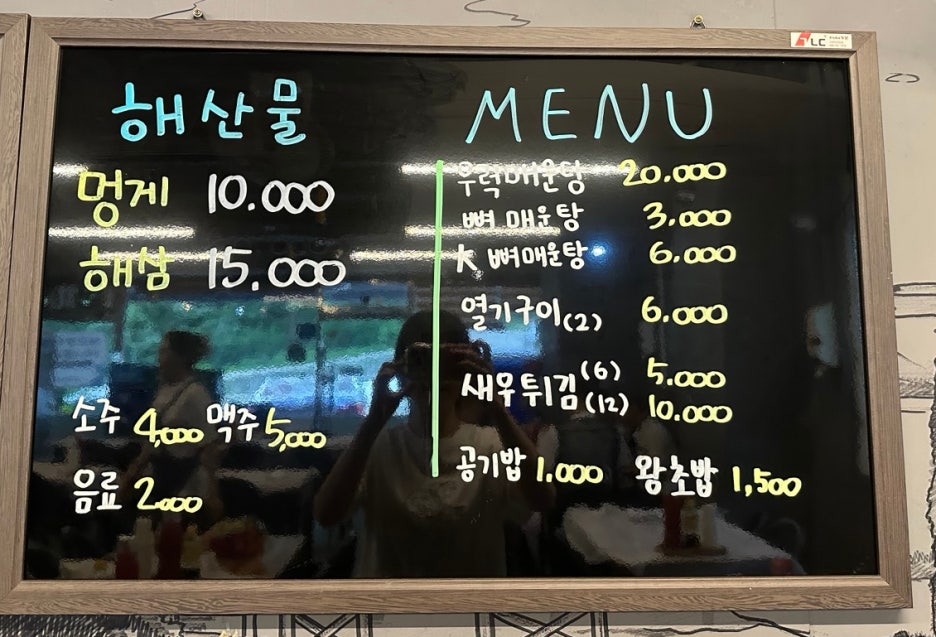 해산물
멍게 10.000
해삼 15.000
소주 4,000 맥주 5,000
음료 2.000
MENU
우럭매운탕 20.000
뼈 매운탕 3.000
K 뼈매운탕 6.000
열기구이(2) 6.000
새우튀김(6) 5.000
(12) 10.000
공기밥 1.000 왕초밥 1,500
LC